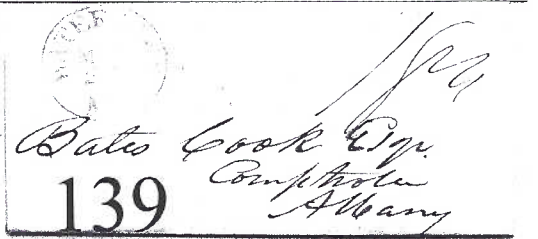 Bates Cook Esqr.
Comptroller
Albany
139